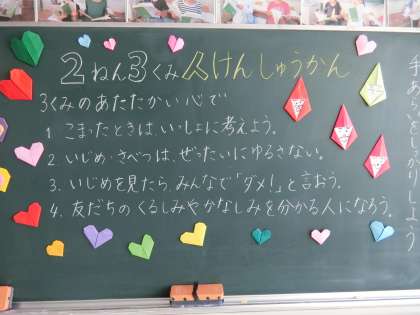 2ねん3くみ人けんしゅうかん
3くみのあたたかい心で
1. こまったときは、いっしょに考えよう。
2. いじめ・さべつは、ぜったいにゆるさない。
3. いじめを見たら、みんなで「ダメ!」と言おう。
4. 友だちのくるしみやかなしみを分かる人になろう。